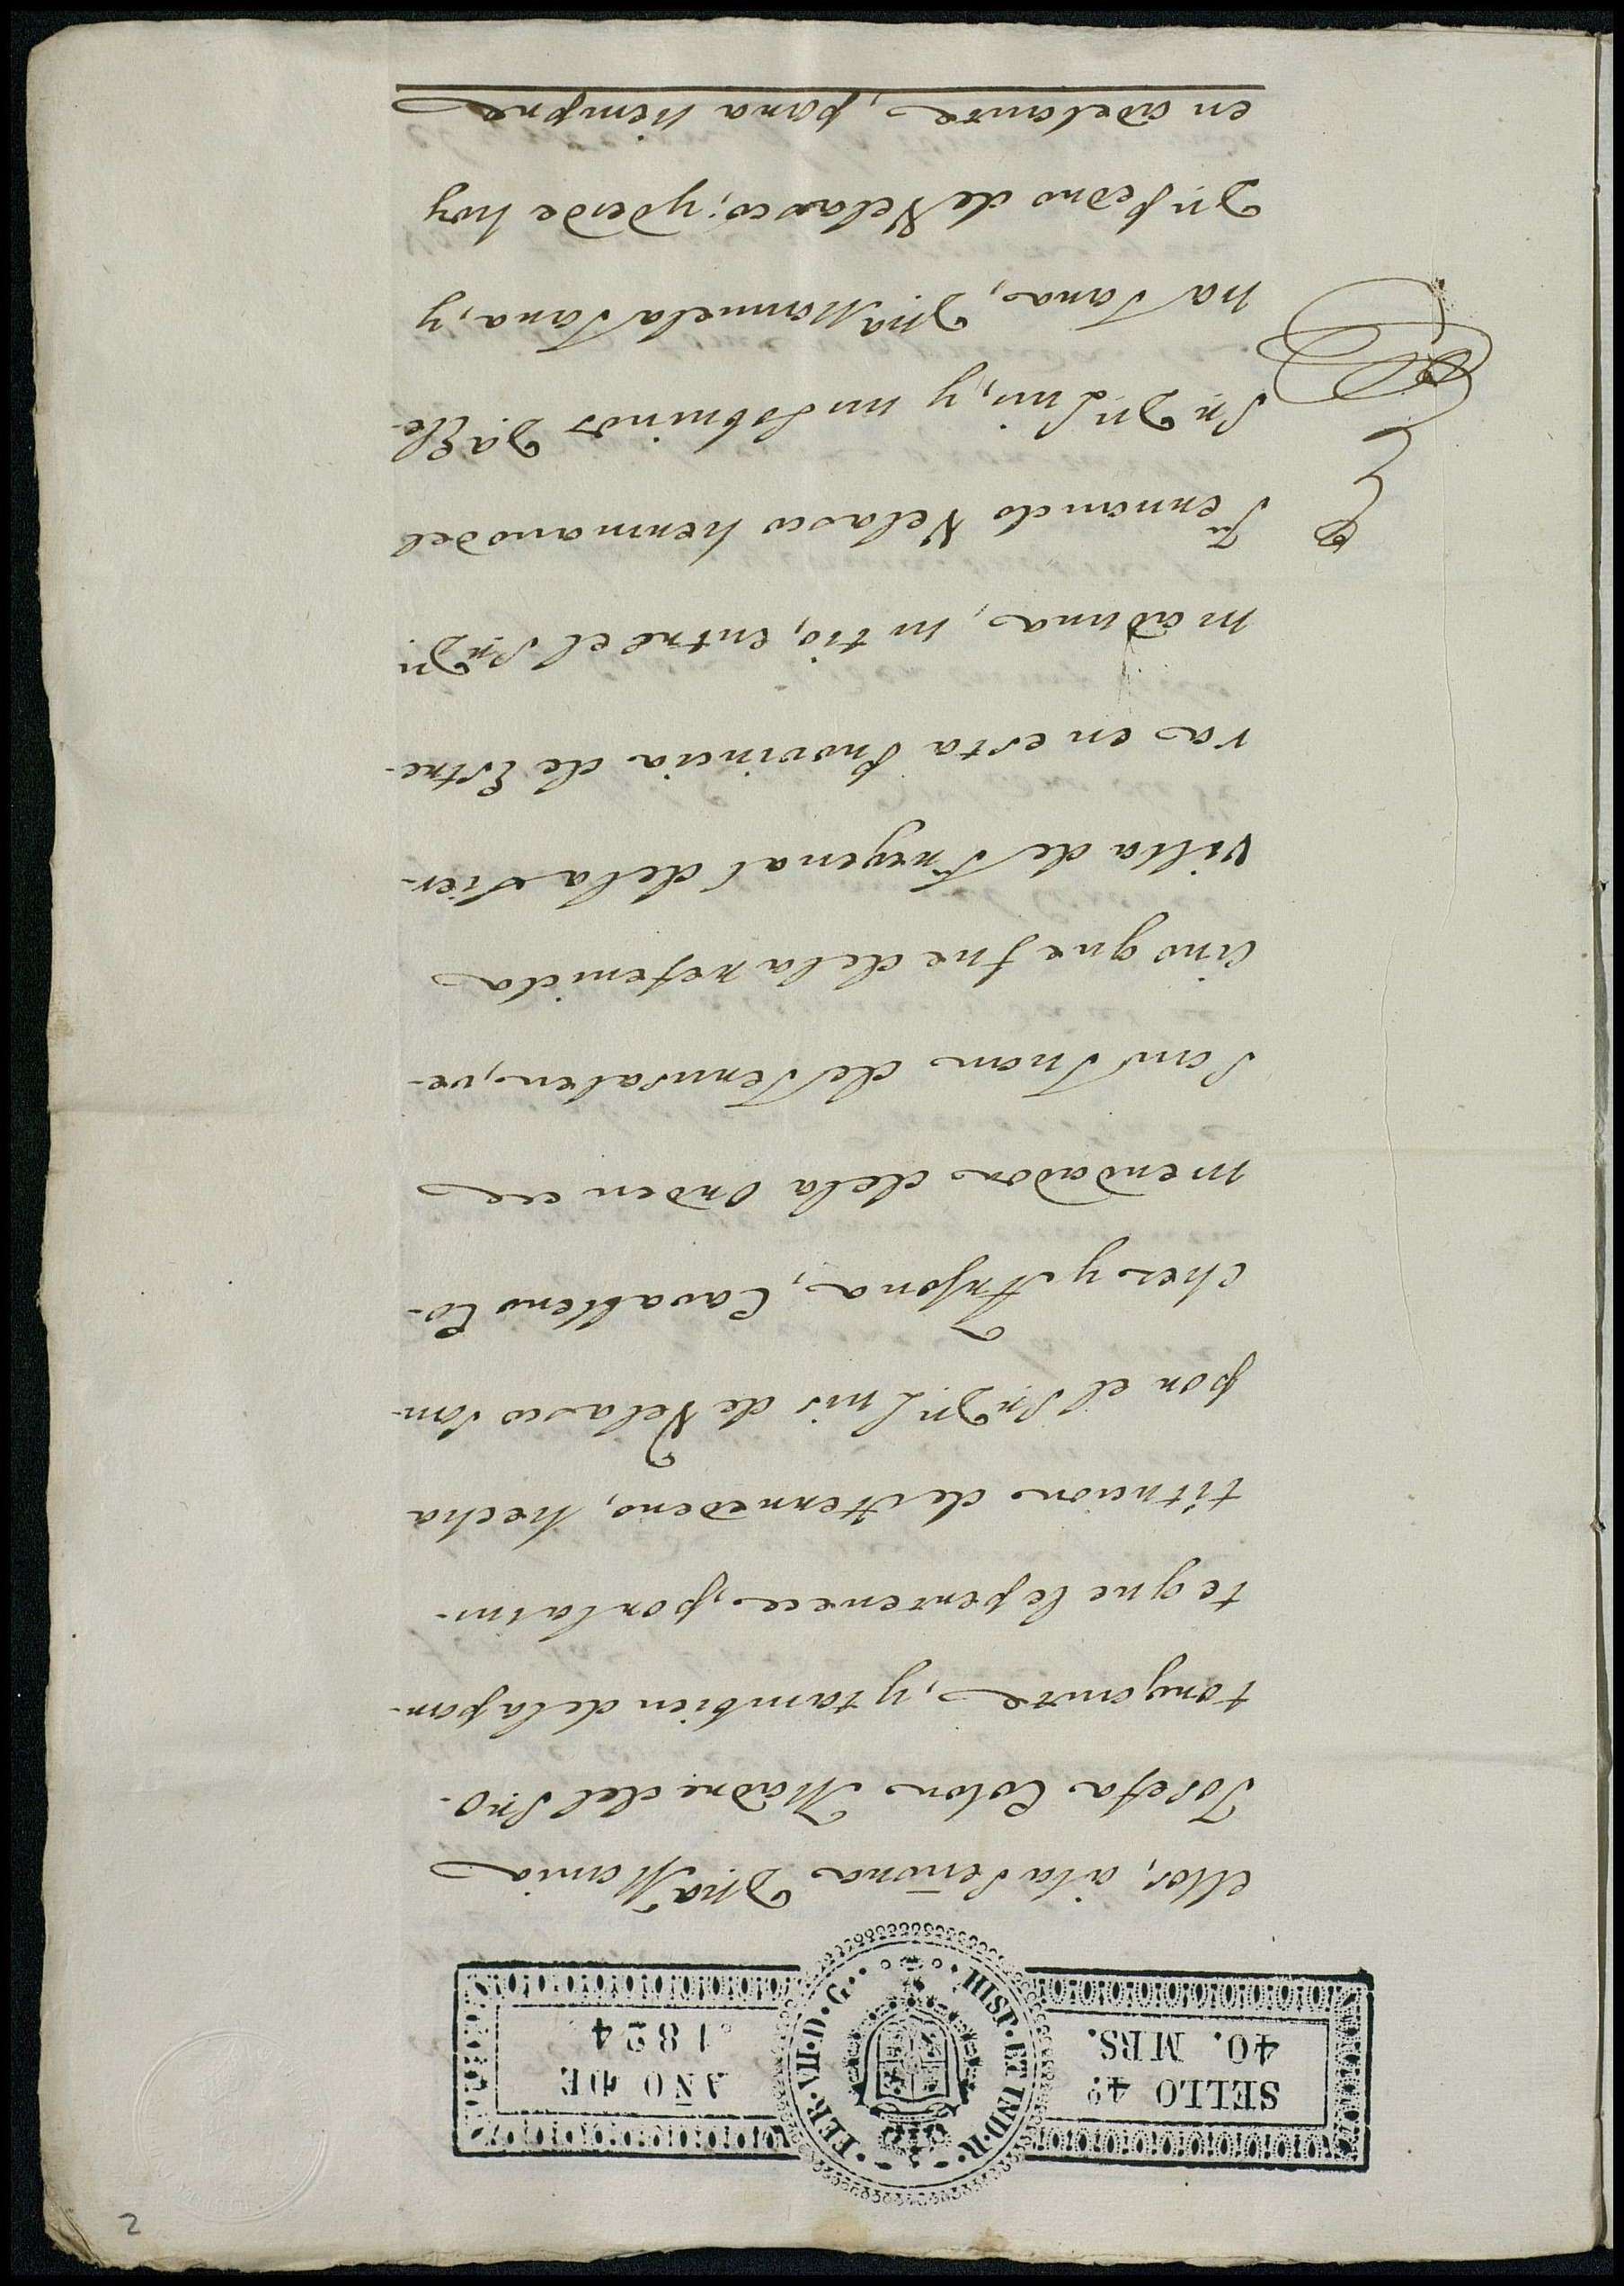 2
SELLO 4º
40. MRS.
FER · VII · D · G · HISP · ET IND · R ·
AÑO DE
1824
ellos, á la Señora Dña. Maria
Josefa Colon Madre del Sr. O-
torgante, y tambien de la par-
te que le pertenece, por la ins-
titucion de Herredero, hecha
por el Sr. Dn. Luis de Velasco San-
chez y Arjona, Cavallero Co-
mendador de la Orden de
San Juan de Jerusalen, ve-
cino que fue de la referida
Villa de Fregenal de la Sier-
ra en esta Provincia de Estre-
madura, su tio, entre el Sr. Dn.
Fernando Velasco hermano del
Sr. Dn. Luis, y sus Sobrinos Da. Ele-
na Jara, Dña. Manuela Jara, y
Dn. Pedro de Velasco; y desde hoy
en adelante, para siempre